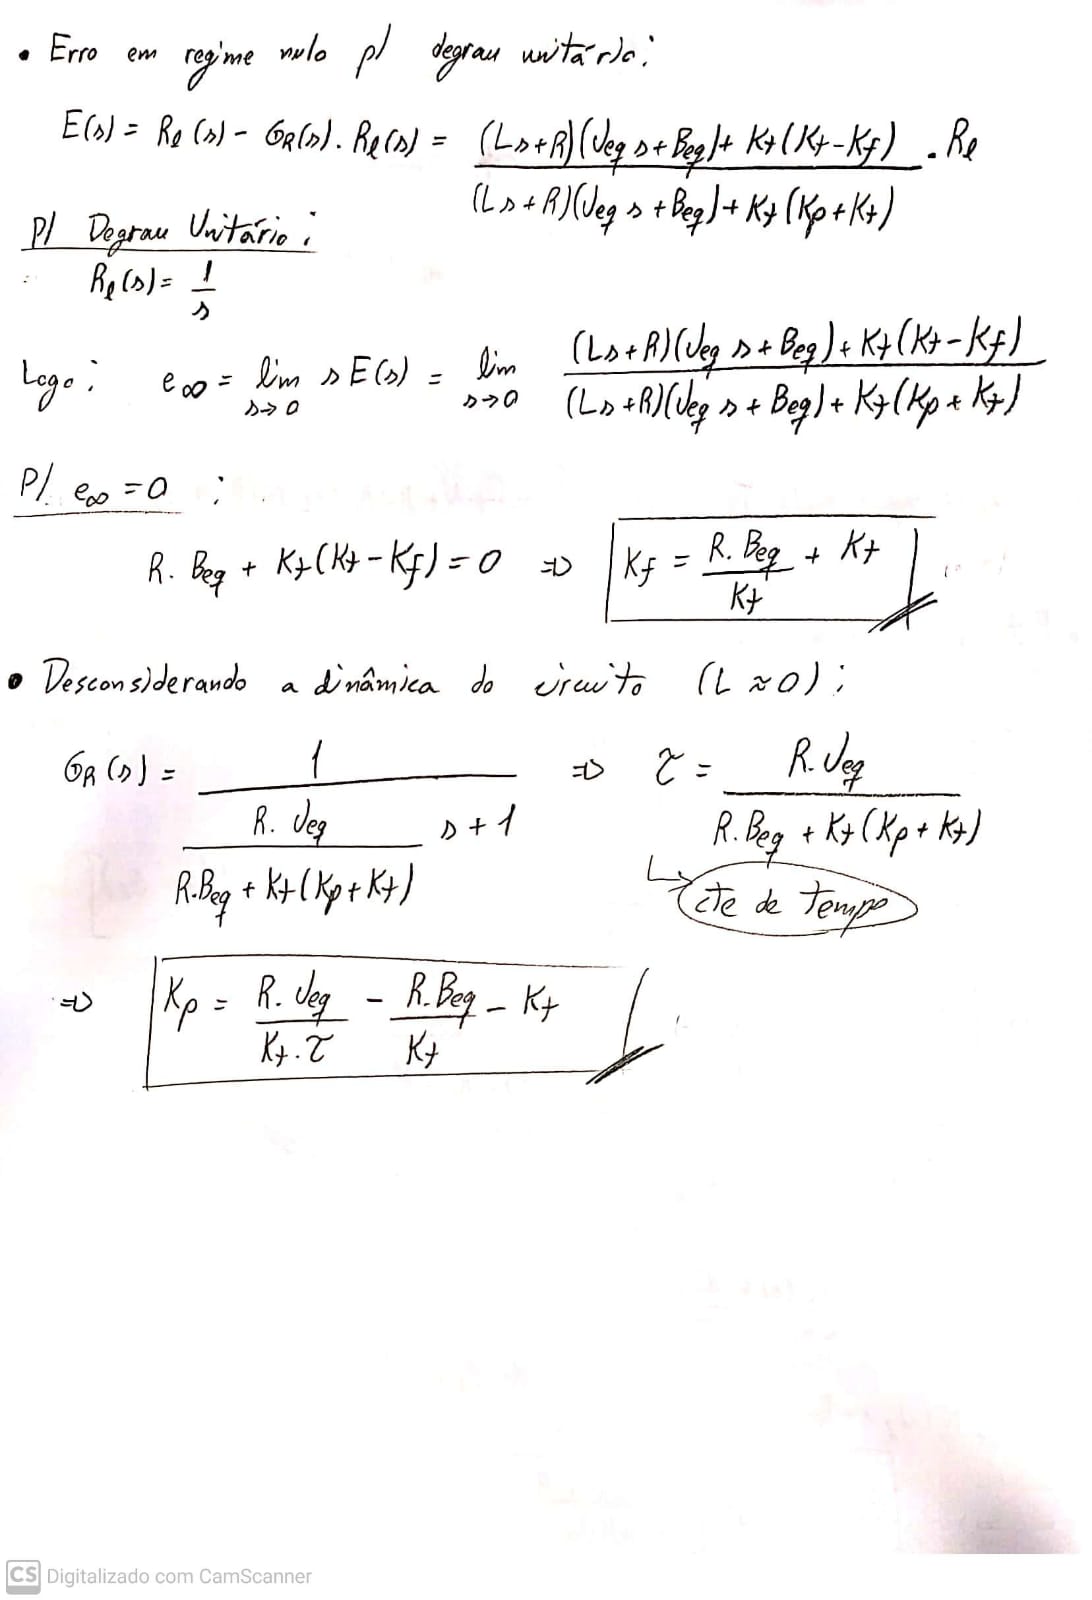 • Erro em regime nulo p/ degrau unitário:
E(s) = Re(s) - GR(s). Re(s) = (Ls+R)(Jeq s + Beq) + Kt(Kt-Kf) / (Ls+R)(Jeq s + Beq) + Kt(Kp+Kt) . Re
P/ Degrau Unitário:
Re(s) = 1/s
Logo: e∞ = lim s→0 s E(s) = lim s→0 (Ls+R)(Jeq s + Beq) + Kt(Kt-Kf) / (Ls+R)(Jeq s + Beq) + Kt(Kp+Kt)
P/ e∞ = 0 :
R. Beq + Kt(Kt-Kf) = 0 ⇒ Kf = R. Beq / Kt + Kt
• Desconsiderando a dinâmica do circuito (L ≈ 0):
GR(s) = 1 / (R. Jeq / (R.Beq + Kt(Kp+Kt)) s + 1) ⇒ τ = R. Jeq / (R.Beq + Kt(Kp+Kt))
cte de tempo
⇒ Kp = R. Jeq / Kt.τ - R.Beq / Kt - Kt
CS Digitalizado com CamScanner